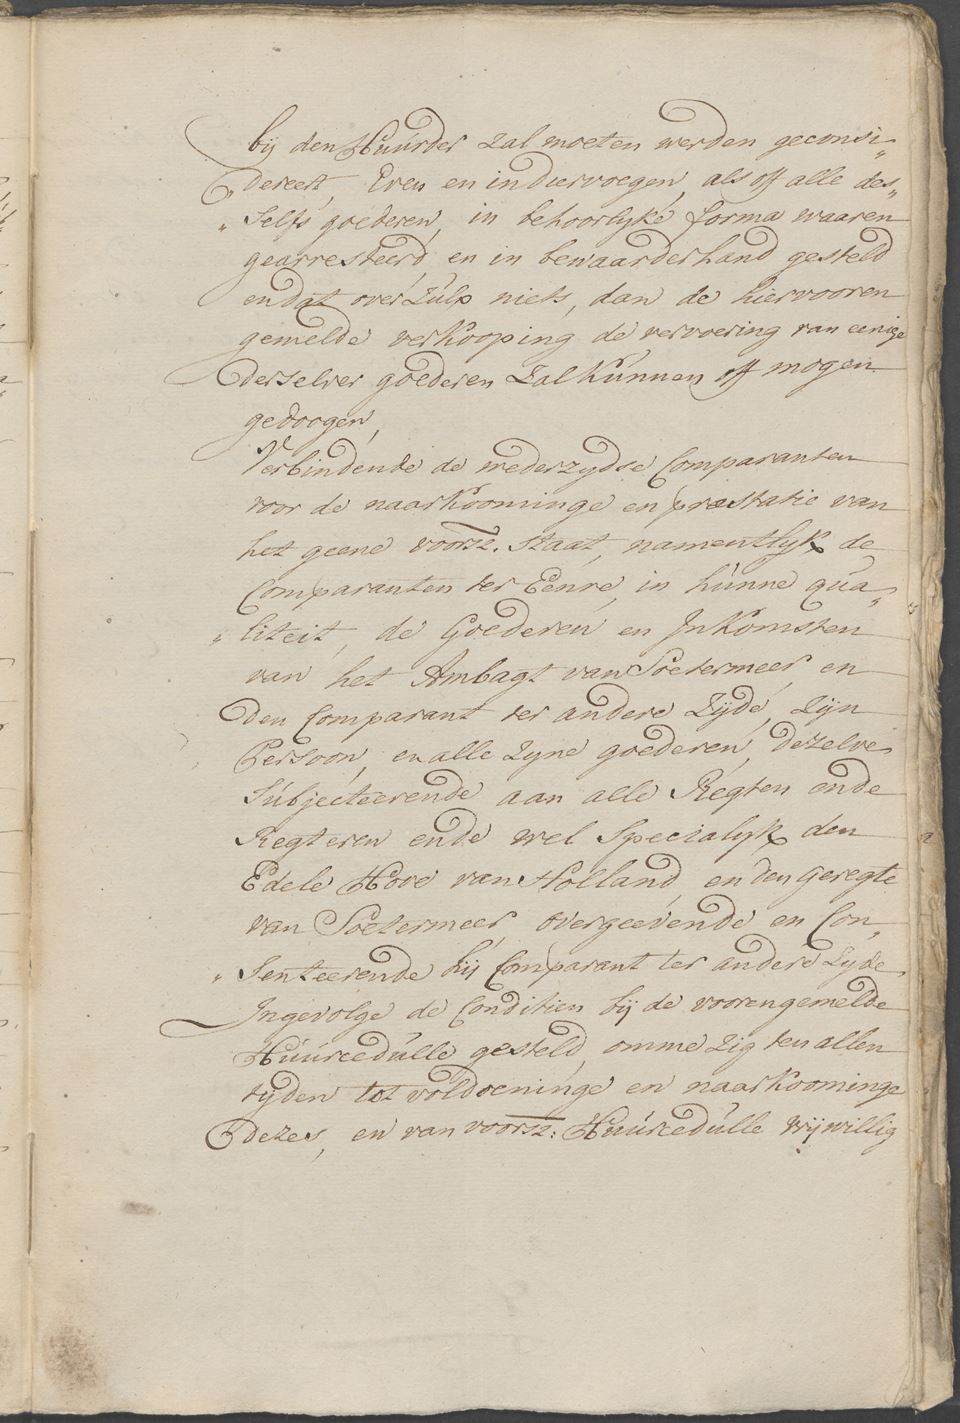 bij den Húúrder zal moeten werden geconsi„
dereert, Even en in diervoegen, als off alle des„
„selfs goederen, in behoorlyke forma waaren
gearresteerd, en in bewaarderhand gesteld
en dat over zúlx niets, dan de hiervooren
gemelde verkooping de vervoering van eenige
derselver goederen zal kúnnen off mogen
gedoogen,
Verbindende de wederzydse Comparanten
voor de naarkoominge en præstatie van
het geene voorsz. staat, namentlyk de
Comparanten ter Eenre, in húnne qúa„
„liteit, de Goederen en Inkomsten
van het Ambagt van Soetermeer, en
den Comparant ter andere Zijde, zijn
Persoon, en alle zyne goederen, dezelve
Súbjecteerende aan alle Regten ende
Regteren ende wel Specialyk den
Edele Hove van Holland, en den geregte
van Soetermeer, overgeevende en Con„
„senteerende hij Comparant ter andere Zyde,
Ingevolge de Conditien bij de voorengemelde
Húúrcedúlle gesteld, omme zig ten allen
tyden tot voldoeninge en naarkoominge
dezes, en van voorsz: Húúrcedúlle vrijwillig